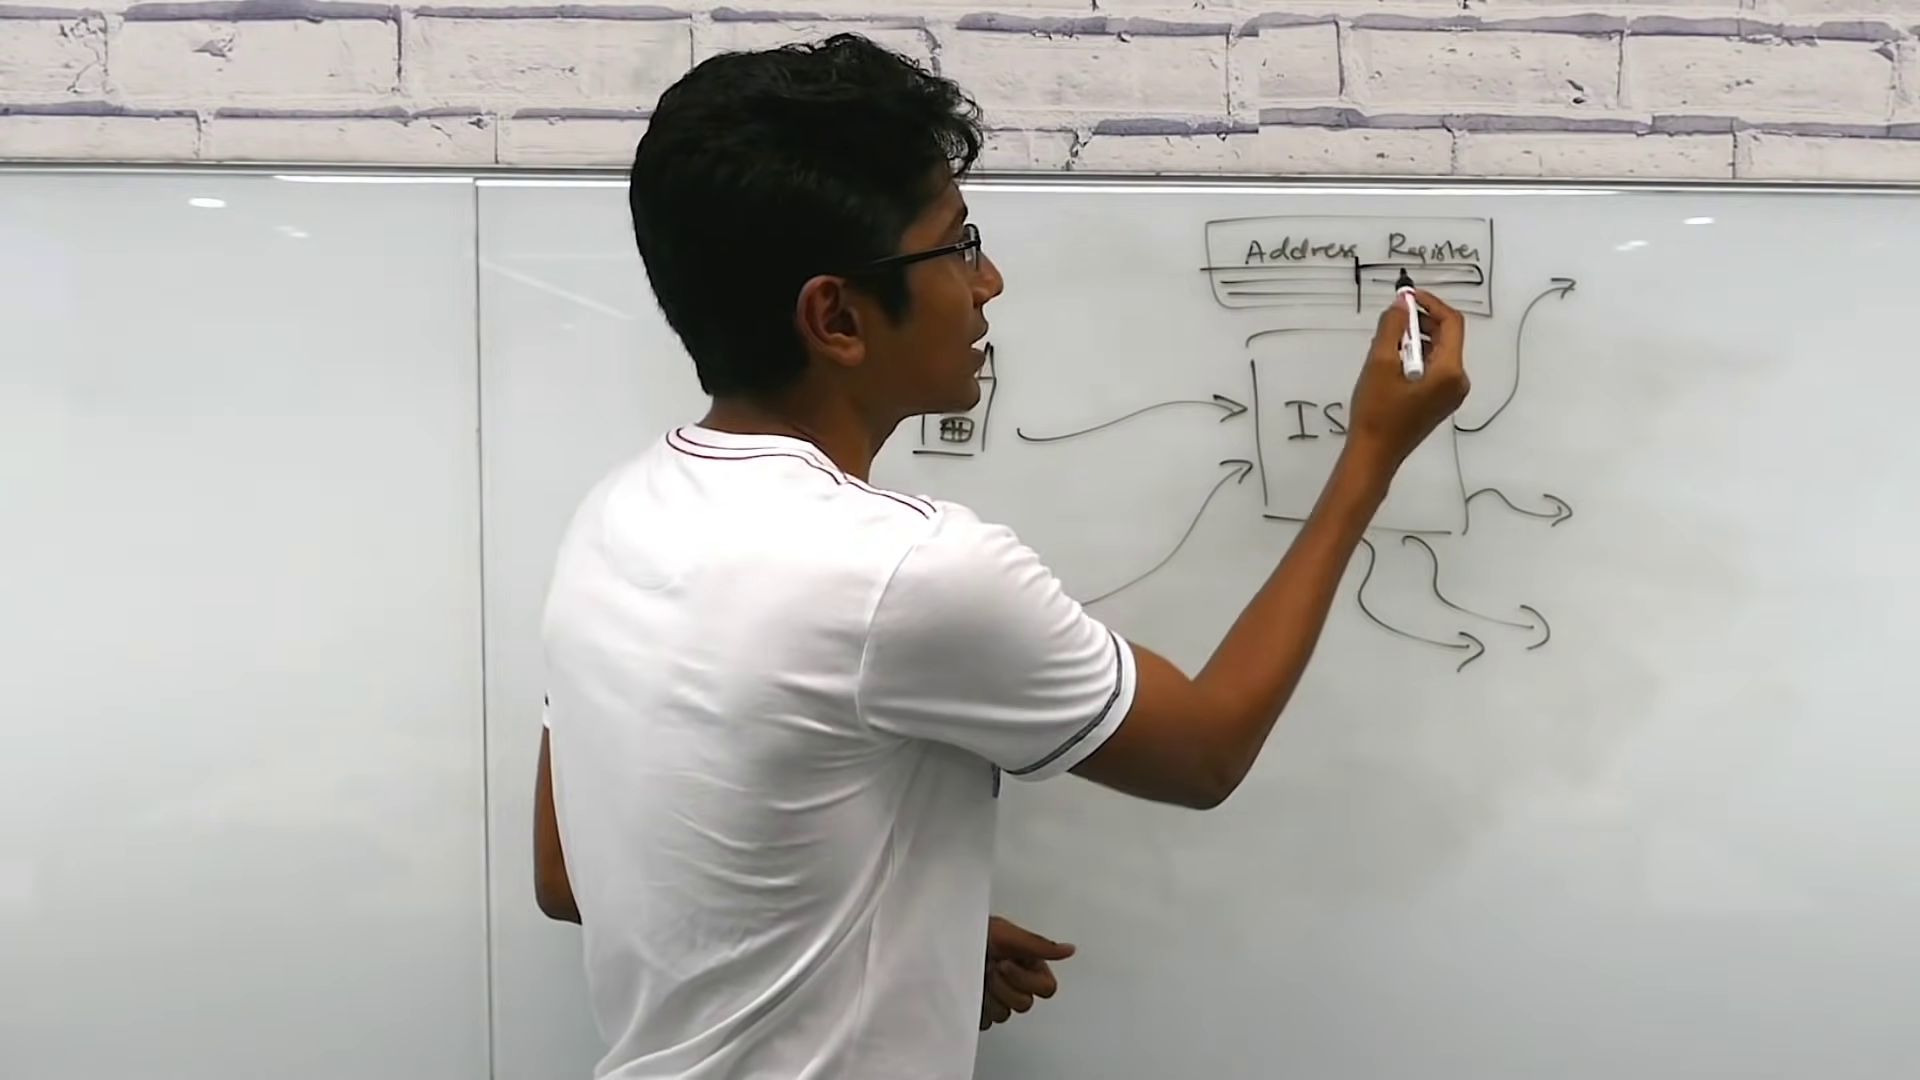 Address Register
IS